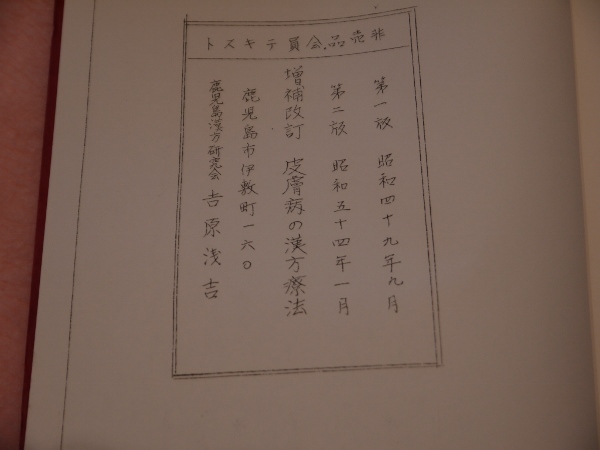 非売品.会員テキスト
第一版 昭和四十九年九月
第二版 昭和五十四年一月
増補改訂 皮膚病の漢方療法
鹿児島市伊敷町一六〇
鹿児島漢方研究会 吉原浅吉